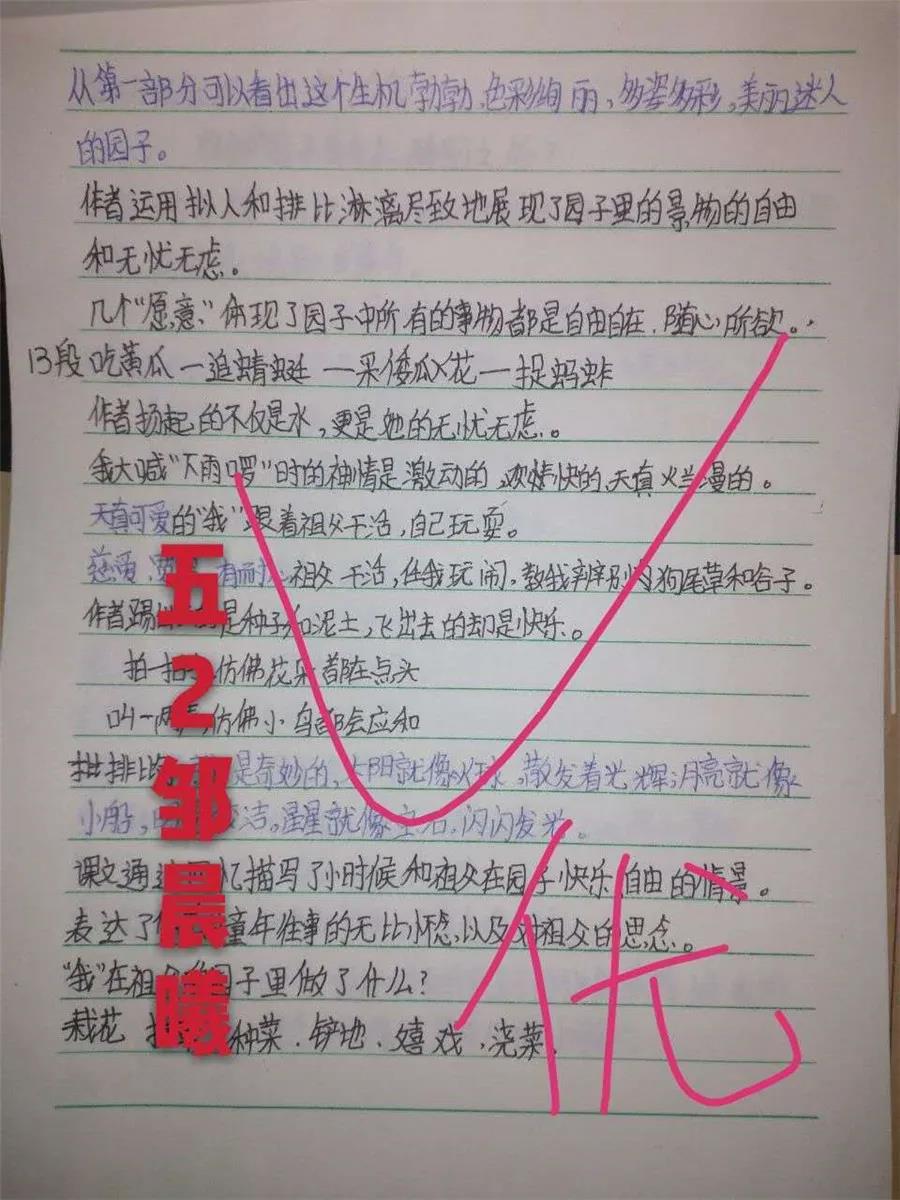 从第一部分可以看出这个生机勃勃,色彩绚丽,多姿多彩,美丽迷人
的园子。
作者运用拟人和排比淋漓尽致地展现了园子里的景物的自由
和无忧无虑。
几个“愿意”体现了园子中所有的事物都是自由自在,随心所欲。
13段 吃黄瓜—追蜻蜓—采倭瓜花—捉蚂蚱
作者扬起的不仅是水,更是她的无忧无虑。
我大喊“下雨啰”时的神情是激动的,欢快的,天真烂漫的。
天真可爱的“我”跟着祖父干活,自己玩耍。
慈爱, 有耐 祖父干活,任我玩闹,教我辨别狗尾草和谷子。
作者踢 是种子和泥土,飞出去的却是快乐。
拍一拍 仿佛花朵都在点头
叫一两声仿佛小鸟都会应和
排比 是奇妙的,太阳就像火球,散发着光辉;月亮就像
小船, 洁,星星就像宝石,闪闪发光。
课文通过回忆描写了小时候和祖父在园子快乐自由的情景。
表达了 童年往事的无比怀念,以及对祖父的思念。
“我”在祖父的园子里做了什么?
栽花 种菜、铲地、嬉戏,浇菜
五2邹晨曦
优